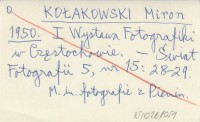 KOŁAKOWSKI Miron
1950. I Wystawa Fotografiki
w Częstochowie. – Świat
Fotografii 5, nr 15: 28-29.
M. in. fotografie z Pienin.